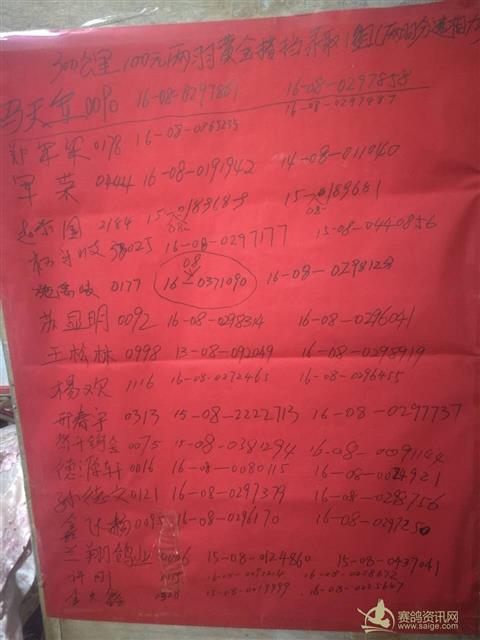 300公里100元两羽黄金搭档录取1组(两羽分速相加
马天军 0090 16-08-0297861 16-08-0297858
16-08-0297487
郭军荣 0178 16-08-0265235
军荣 0444 16-08-0191942 14-08-011040
赵荣国 2184 15-0189689 15-0189681
08 08
38025 16-08-0297177 15-08-0440856
08
0177 16-0371090 16-08-0298128
苏显明 0092 16-08-0298314 16-08-0296041
王松林 0998 13-08-092049 16-08-0298919
杨欢 1116 16-08-0272465 16-08-0296455
寿宇 0313 15-08-2222713 16-08-0297737
0075 15-08-0381294 16-08-0091144
德源轩 0016 16-08-0080115 16-08-0024921
孙德 0121 16-08-0297379 16-08-0298756
鑫 0095 16-08-0296170 16-08-029725
兰翔鸽业 15-08-0124860 15-08-0437041
许刚
赛鸽资讯网
www.saige.com